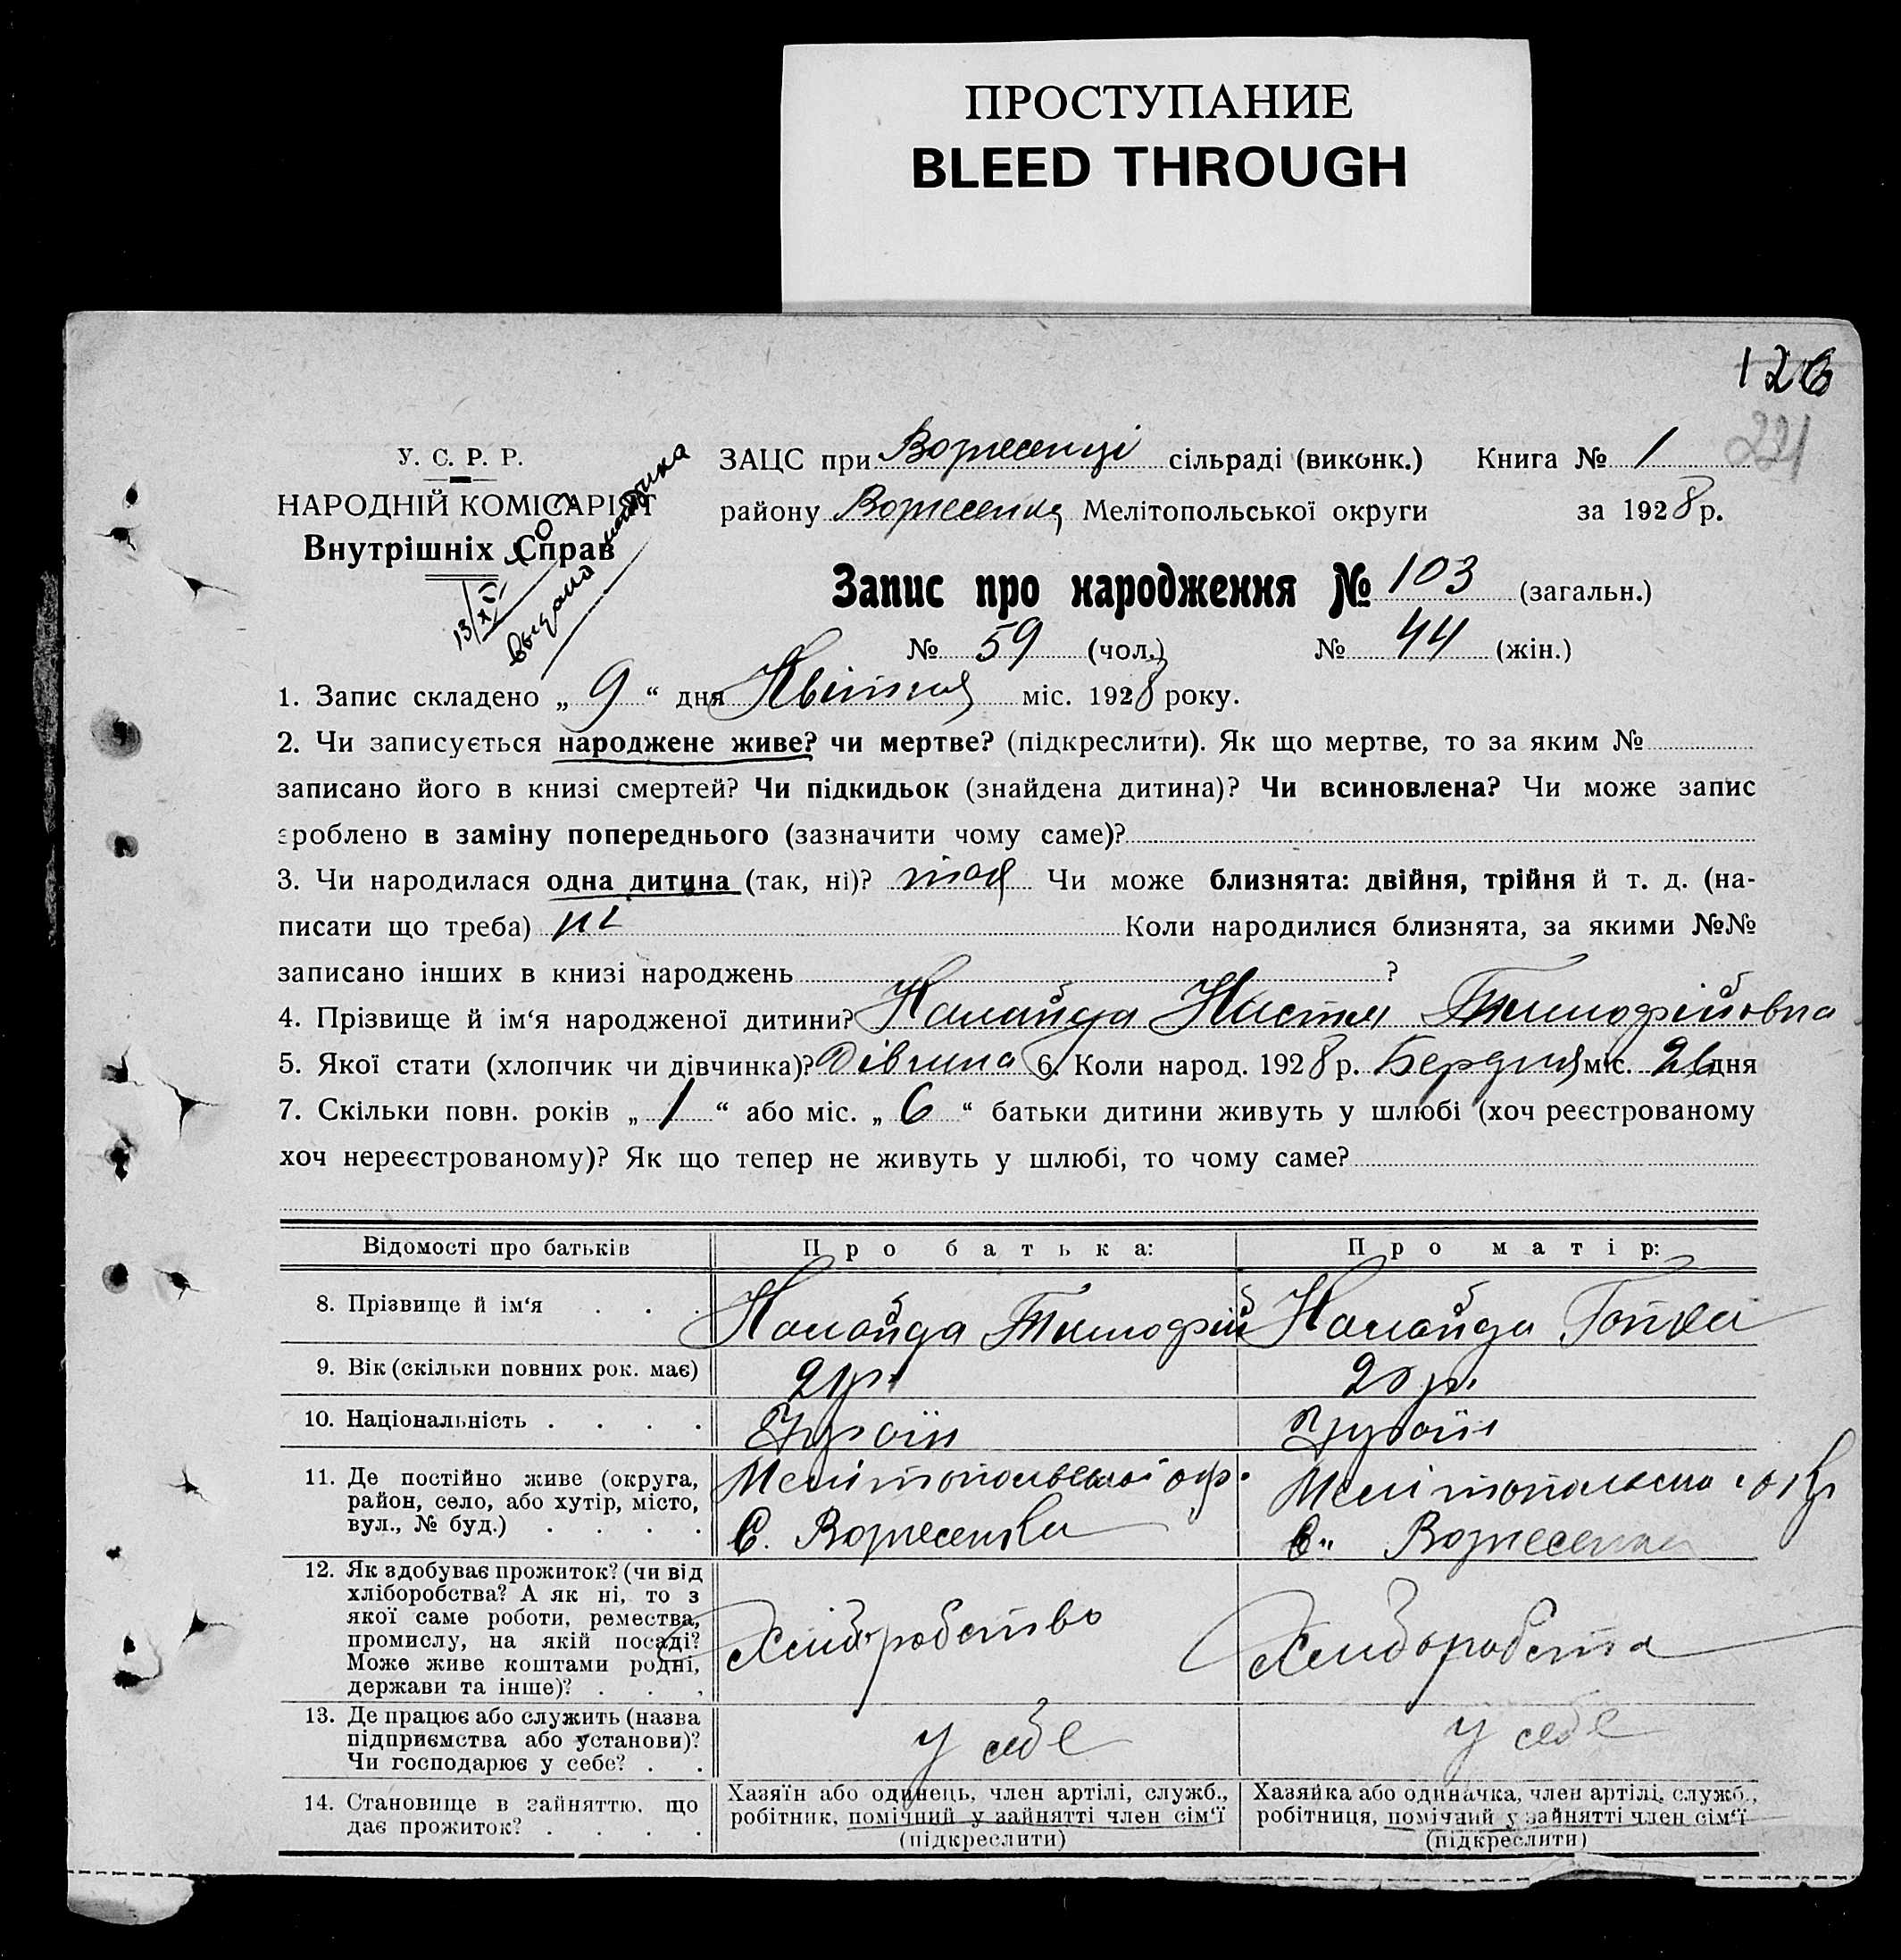 ПРОСТУПАНИЕ
BLEED THROUGH
126
221
У. С. Р. Р.
НАРОДНІЙ КОМІСАРІЯТ
Внутрішніх Справ
13/XI
ЗАЦС при Вознесенці сільраді (виконк.) Книга № 1
району Вознесенка Мелітопольської округи за 1928 р.
Запис про народження № 103 (загальн.)
№ 59 (чол.) № 44 (жін.)
1. Запис складено „ 9 “ дня Квітня міс. 1928 року.
2. Чи записується народжене живе? чи мертве? (підкреслити). Як що мертве, то за яким №
записано його в книзі смертей? Чи підкидьок (знайдена дитина)? Чи всиновлена? Чи може запис
зроблено в заміну попереднього (зазначити чому саме)?
3. Чи народилася одна дитина (так, ні)? так Чи може близнята: двійня, трійня й т. д. (на-
писати що треба) ні Коли народилися близнята, за якими №№
записано інших в книзі народжень ?
4. Прізвище й ім‘я народженої дитини? Настя Тимофіївна
5. Якої стати (хлопчик чи дівчинка)? Дівчина 6. Коли народ. 1928 р. Березня міс. 26 дня
7. Скільки повн. років „ 1 “ або міс. „ 6 “ батьки дитини живуть у шлюбі (хоч реєстрованому
хоч нереєстрованому)? Як що тепер не живуть у шлюбі, то чому саме?
Відомості про батьків Про батька: Про матір:
8. Прізвище й ім‘я . . . Тимофій
9. Вік (скільки повних рок. має) 21 р. 20 р.
10. Національність . . . . Україн Україн
11. Де постійно живе (округа,
район, село, або хутір, місто,
вул., № буд.) . . . .
Мелітопольської окр.
с. Вознесенка
Мелітопольська окр
с. Вознесенка
12. Як здобуває прожиток? (чи від
хліборобства? А як ні, то з
якої саме роботи, ремества,
промислу, на якій посаді?
Може живе коштами родні,
держави та інше)? . . .
Хліборобство
Хлібороbства
13. Де працює або служить (назва
підприємства або установи)?
Чи господарює у себе? . .
у себе
у себе
14. Становище в зайняттю, що
дає прожиток? . . . .
Хазяїн або одинець, член артілі, служб.,
робітник, помічний у зайнятті член сім‘ї
(підкреслити)
Хазяйка або одиначка, член артілі, служб.,
робітниця, помічний у зайнятті член сім‘ї
(підкреслити)